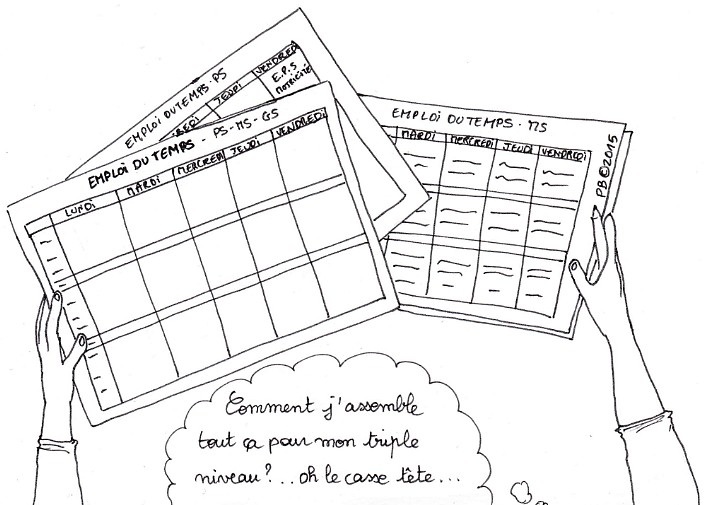 EMPLOi DU TEMPS - PS
JEUDI VENDREDI
E.P.S
MOTRICITÉ
EMPLOi DU TEMPS - PS - MS - GS
LUNDI MARDI MERCREDI JEUDI VENDREDI
EMPLOi DU TEMPS - MS
MARDI MERCREDI JEUDI VENDREDI
PB©2015
Comment j'assemble
tout ça pour mon triple
niveau?...oh le casse tête...